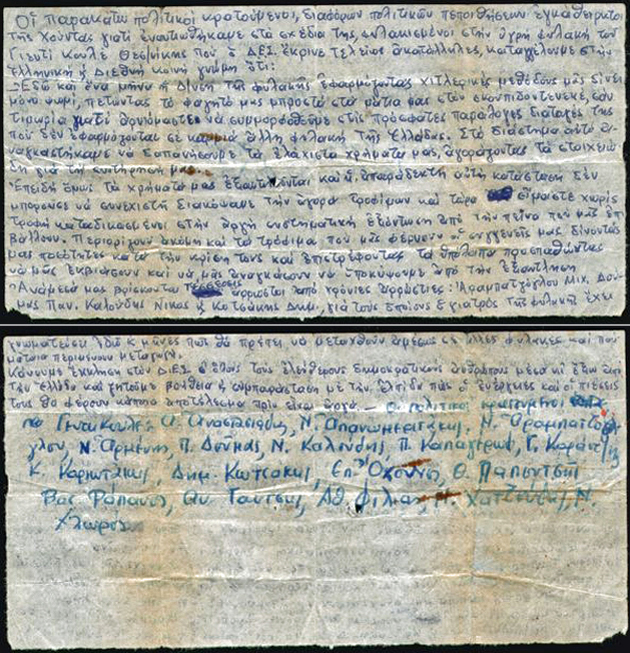 Οἱ παρακάτω πολιτικοί κρατούμενοι, διαφόρων πολιτικῶν πεποιθήσεων ἐγκάθειρκτοι
τῆς Χούντας γιατί ἐναντιωθήκαμε στά σχέδιά της, φυλακισμένοι στήν ὑγρή φυλακή τοῦ
Γεντί Κουλέ Θεσ/νίκης πού ὁ Δ.Ε.Σ. ἔκρινε τελείως ἀκατάλληλες, καταγγέλουμε στήν
Ἑλληνική ἤ Διεθνή κοινή γνώμη ὅτι:
Ἐδῶ καί ἕνα μήνα ἡ Δ/νση τῆς φυλακῆς ἐφαρμόζοντας χιτλερικές μεθόδους μᾶς δίνει
μόνο ψωμί, πετώντας τό φαγητό μας μπροστά στά μάτια μας στόν σκουπιδοντενεκέ, σάν
τιμωρία γιατί ἀρνιόμαστε νά συμμορφωθοῦμε στίς πρόσφατες παράλογες διαταγές της
πού δέν ἐφαρμόζονται σέ καμμιά ἄλλη φυλακή τῆς Ἑλλάδας. Στό διάστημα αὐτό ἀ-
ναγκαστήκαμε νά δαπανήσουμε τά ἐλάχιστα χρήματά μας, ἀγοράζοντας τά στοιχειώ
δη γιά τήν συντήρησή μας
Ἐπειδή ὅμως τά χρήματά μας ἐξαντλοῦνται καί ἡ ἀπαράδεκτη αὐτή κατάσταση δέν
μποροῦσε νά συνεχιστῆ διακόψαμε τήν ἀγορά τροφίμων καί τώρα εἴμαστε χωρίς
τροφή καταδικασμένοι στήν ἀργή συστηματική ἐξόντωση ἀπό τήν πείνα πού μᾶς ἐπι
βάλλουν. Περιορίζουν ἀκόμη καί τά τρόφιμα πού μᾶς φέρνουν οἱ συγγενεῖς μας δίνοντάς
μας ποσότητες κατά τήν κρίση τους καί ἐπιστρέφοντας τά ὑπόλοιπα προσπαθώντας
νά μᾶς ἐκβιάσουν καί νά μᾶς ἀναγκάσουν νά ὑποκύψουμε ἀπό τήν ἐξάντληση
Ἀνάμεσά μας βρίσκονται τέσσερεις ἄρρωστοι ἀπό χρόνιες ἀρρώστιες: Ἀραμπατζόγλου Μιχ. Δού-
μας Παν. Καλούδης Νίκος ἤ Κωτσάκης Δημ. γιά τούς ὁποίους ὁ γιατρός τῆς φυλακῆς ἔχει
γνωματεύσει ἐδῶ κ μῆνες πώς θά πρέπει νά μεταχθοῦν ἀμέσως σέ ἄλλες φυλακές καί πού
μάταια περιμένουν μεταγωγή.
Κάνουμε ἔκκληση στόν Δ.Ε.Σ σ' ὅλους τούς ἐλεύθερους δημοκρατικούς ἀνθρώπους μέσα κι' ἔξω ἀπό
τήν Ἑλλάδα καί ζητοῦμε βοήθεια ἤ συμπαράσταση μέ τήν ἐλπίδα πώς οἱ ἐνέργειες καί οἱ πιέσεις
τους θά φέρουν κάποιο ἀποτέλεσμα πρίν εἶναι ἀργά. — Οἱ πολιτικοί κρατούμενοι
Γεντί Κουλέ: Ἀ. Ἀναστασιάδης, Ν. Ἀραμπατζό
γλου, Ν. Ἀρμένης, Π. Δούμας, Ν. Καλούδης, Π. Καπαγέρωφ, Γ. Καράντ
Κ. Καριωτάκης, Δημ. Κωτσάκης, Θ. Παπουτσῆς
Βας. Ράπανος, Ἀθ. Φίλιας, Χατζευζῆς, Ν.
Χλωρός